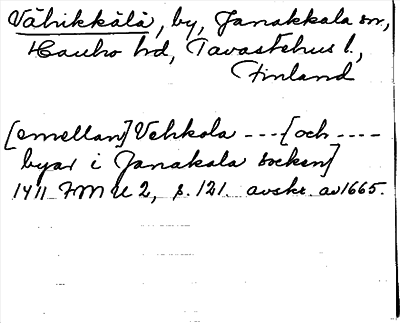 Vähikkälä, by, Janakkala sn,
Hauho hd, Tavastehus l.,
Finland
[emellan] Vehkola --- [och ----
byar i Janakala socken]
1411 FMU 2, s. 121. avskr. av 1665.